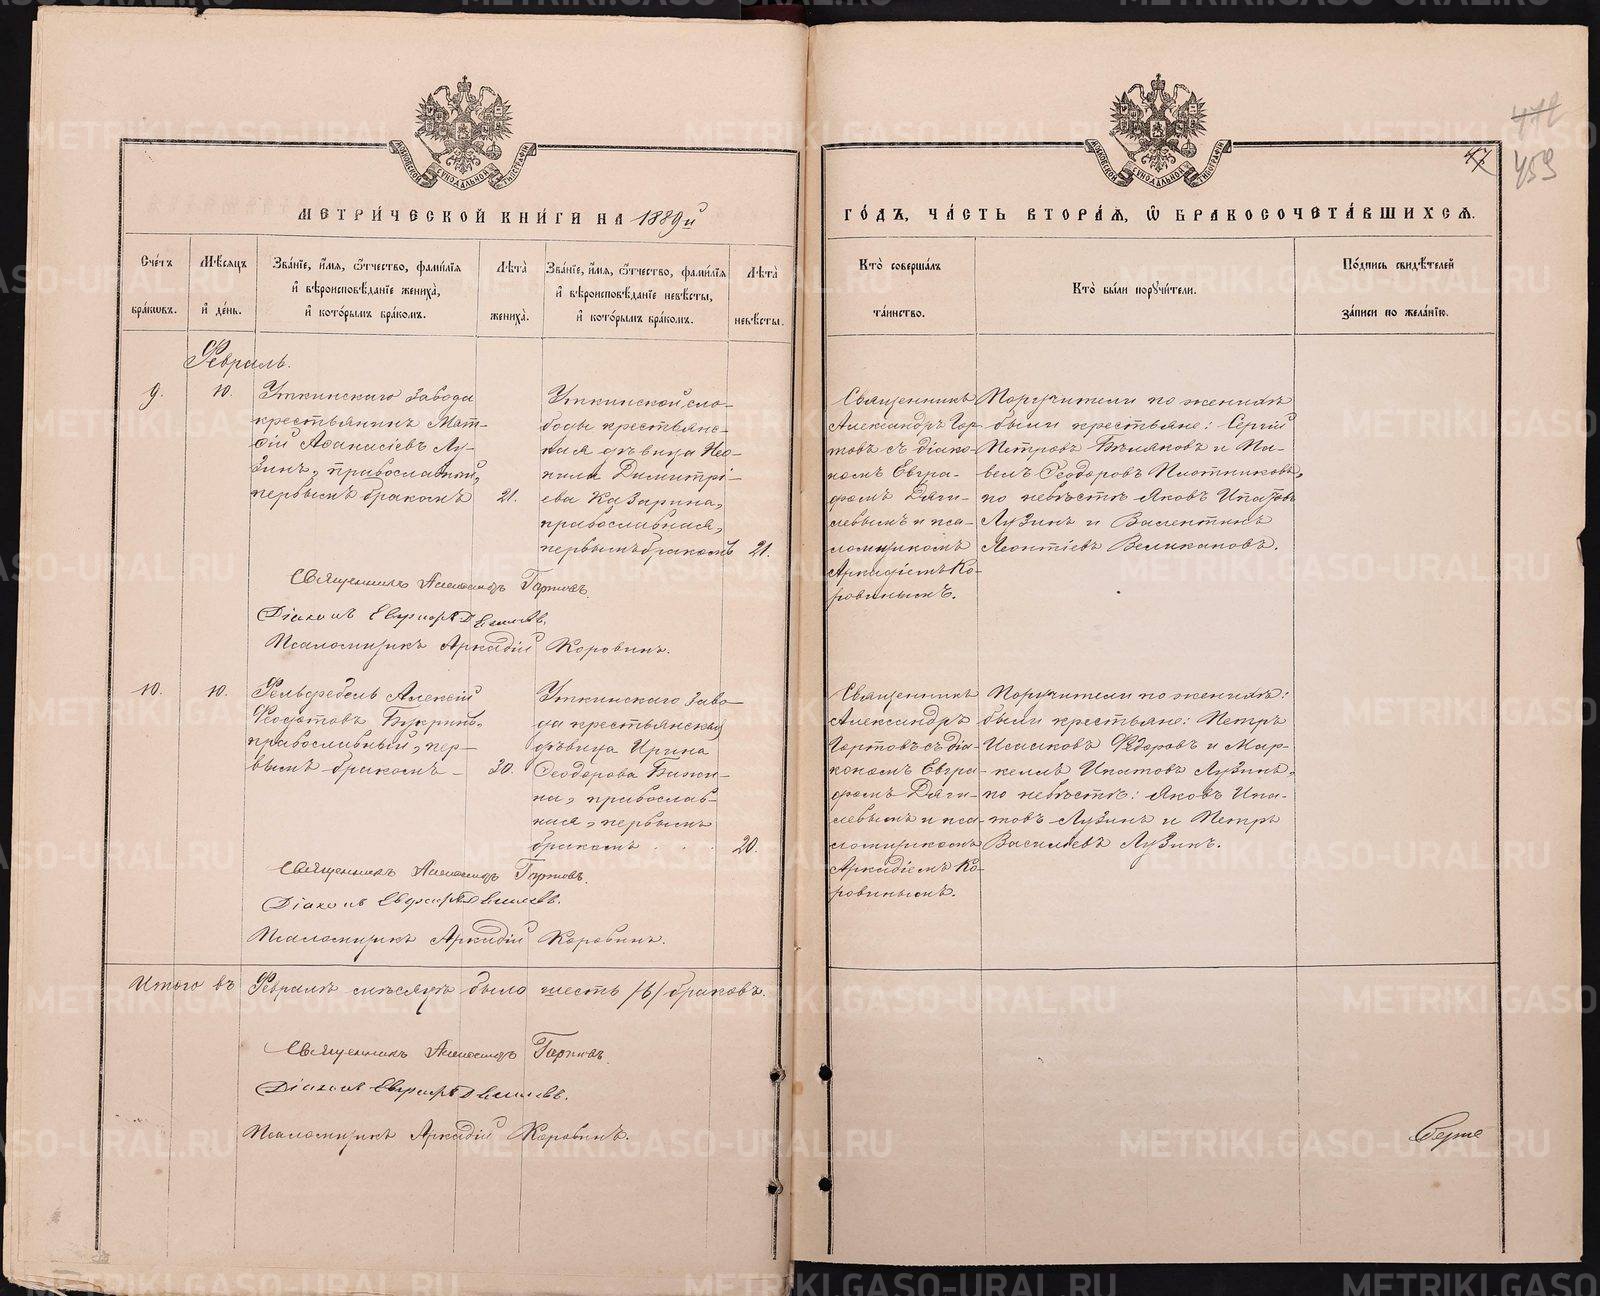 МЕТРИ́ЧЕСКОЙ КНИ́ГИ НА 1889й
ГО́ДЪ, ЧА́СТЬ ВТОРА́Я, Ѿ БРАКОСОЧЕТА́ВШИХСЯ.
47
459
Сче́тъ бра́ковъ.
Мѣ́сяцъ и҆ де́нь.
Зва́нїе, и҆́мя, ѻ҆́тчество, фами́лїя и҆ вѣроисповѣ́данїе жениха̀, и҆ кото́рымъ бра́комъ.
Лѣта̀ жениха̀.
Зва́нїе, и҆́мя, ѻ҆́тчество, фами́лїя и҆ вѣроисповѣ́данїе невѣ́сты, и҆ кото́рымъ бра́комъ.
Лѣта̀ невѣ́сты.
Кто̀ соверша́лъ та́инство.
Кто̀ бы́ли порꙋчи́тели.
По́дпись свидѣ́телей за́писи по жела́нїю.
Февраль.
9.
10.
Уткинскаго завода
крестьянинъ Мат-
ѳій Аѳанасіевъ Лу-
зинъ, православный,
первымъ бракомъ
21.
Уткинской сло-
боды крестьянс-
кая дѣвица Нео-
нила Димитрі-
ева Казарина,
православная,
первымъ бракомъ
21.
Священникъ
Александръ Гор-
товъ съ діако-
номъ Евгра-
фомъ Дяги-
левымъ и пса-
ломщикомъ
Аркадіемъ Ко-
ровинымъ.
Поручители по женихѣ
были крестьяне: Сергій
Петровъ Бѣляковъ и Па-
велъ Ѳеодоровъ Плотниковъ,
по невѣстѣ Яковъ Ипатовъ
Лузинъ и Валентинъ
Леонтіевъ Великановъ.
Священникъ Александръ Гортовъ.
Діаконъ Евграфъ Дягилевъ.
Псаломщикъ Аркадій Коровинъ.
10.
10.
Фельдфебель Алексій
Ѳедотовъ
православный, пер-
вымъ бракомъ
30.
Уткинскаго заво-
да крестьянская
дѣвица Ирина
Ѳеодорова
православ-
ная, первымъ
бракомъ
20.
Священникъ
Александръ
Гортовъ съ діа-
кономъ Евгра-
фомъ Дяги-
левымъ и пса-
ломщикомъ
Аркадіемъ Ко-
ровинымъ.
Поручители по женихѣ:
были крестьяне: Петръ
Исааковъ Ѳедоровъ и Мар-
келлъ Ипатовъ Лузинъ,
по невѣстѣ: Яковъ Ипа-
товъ Лузинъ и Петръ
Василіевъ Лузинъ.
Священникъ Александръ Гортовъ.
Діаконъ Евграфъ Дягилевъ.
Псаломщикъ Аркадій Коровинъ.
Итого въ Февралѣ мѣсяцѣ было шесть /6/ браковъ.
Священникъ Александръ Гортовъ.
Діаконъ Евграфъ Дягилевъ.
Псаломщикъ Аркадій Коровинъ.
METRIKI.GASO-URAL.RU